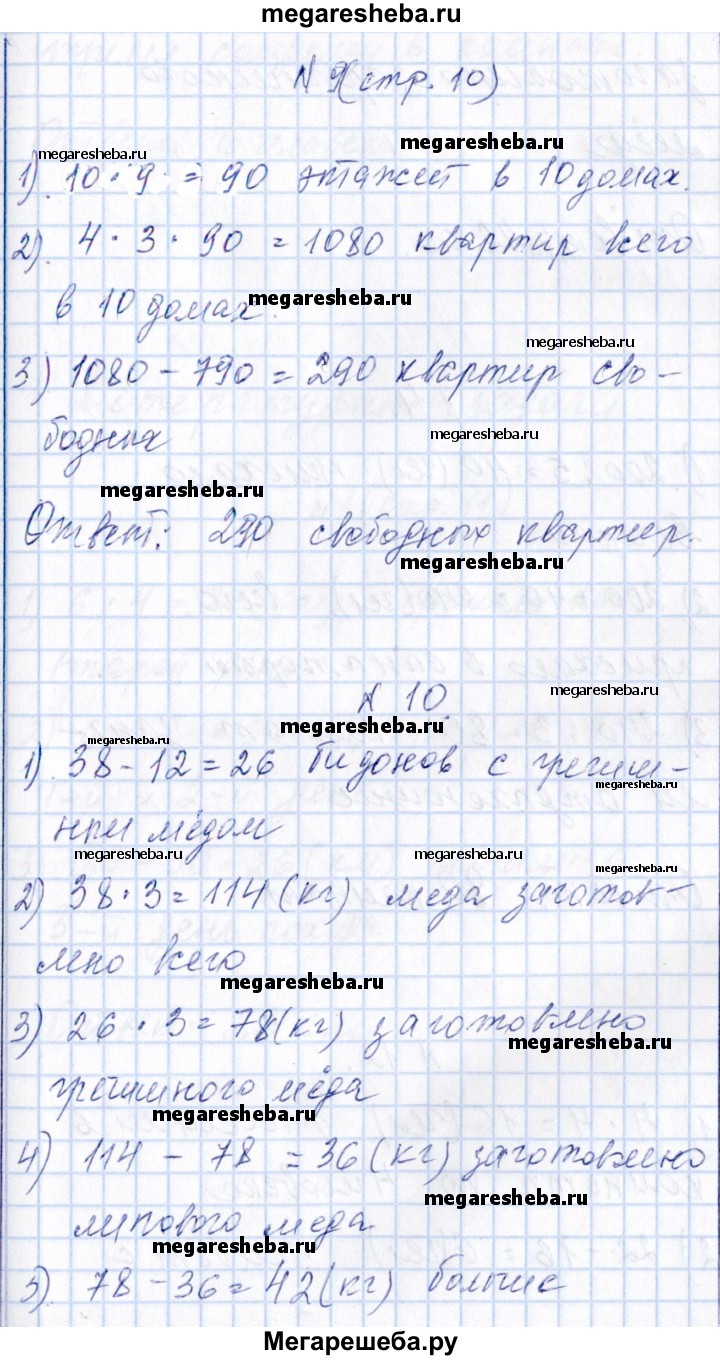 megaresheba.ru
N 9 (стр. 10)
megaresheba.ru
megaresheba.ru
1). 10 · 9 = 90 этажест в 10 домах.
2). 4 · 3 · 90 = 1080 квартир всего
megaresheba.ru
в 10 домах.
megaresheba.ru
3) 1080 - 790 = 290 квартир сво-
megaresheba.ru
бодных
megaresheba.ru
Ответ: 290 свободных квартир.
megaresheba.ru
N 10
megaresheba.ru
megaresheba.ru
megaresheba.ru
1). 38 - 12 = 26 бидонов с гречиш-
megaresheba.ru
ным мёдом
megaresheba.ru
megaresheba.ru
megaresheba.ru
2) 38 · 3 = 114 (кг) меда заготов-
лено всего
megaresheba.ru
3) 26 · 3 = 78 (кг) заготовлено
megaresheba.ru
гречишного мёда
megaresheba.ru
4) 114 - 78 = 36 (кг) заготовлено
megaresheba.ru
липового меда
megaresheba.ru
5). 78 - 36 = 42 (кг) больше
Мегарешеба.ру